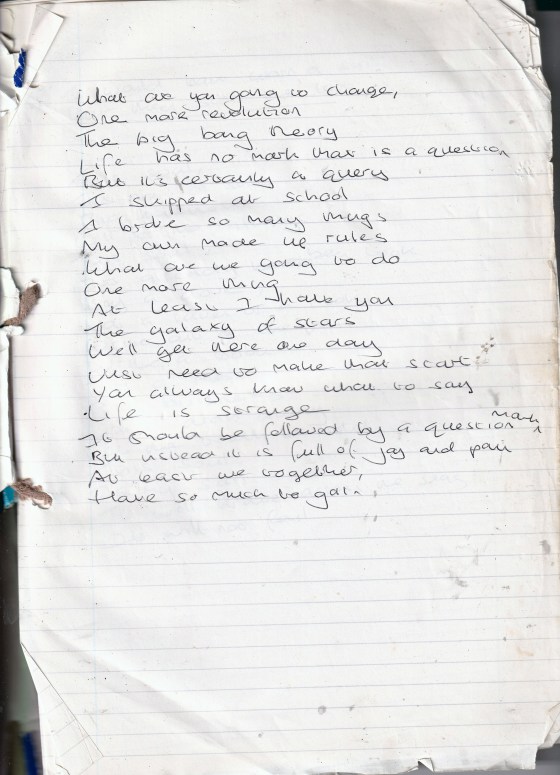 What are you going to change,
One more revolution
The big bang theory
Life has no mark that is a question
But it's certainly a query
I skipped at school
I broke so many things
My own made up rules
What are we going to do
One more thing
At least I have you
The galaxy of stars
We'll get there one day
Just need to make that start
You always know what to say
Life is strange
It should be followed by a question mark
But instead it is full of joy and pain
At least we together,
Have so much to gain.